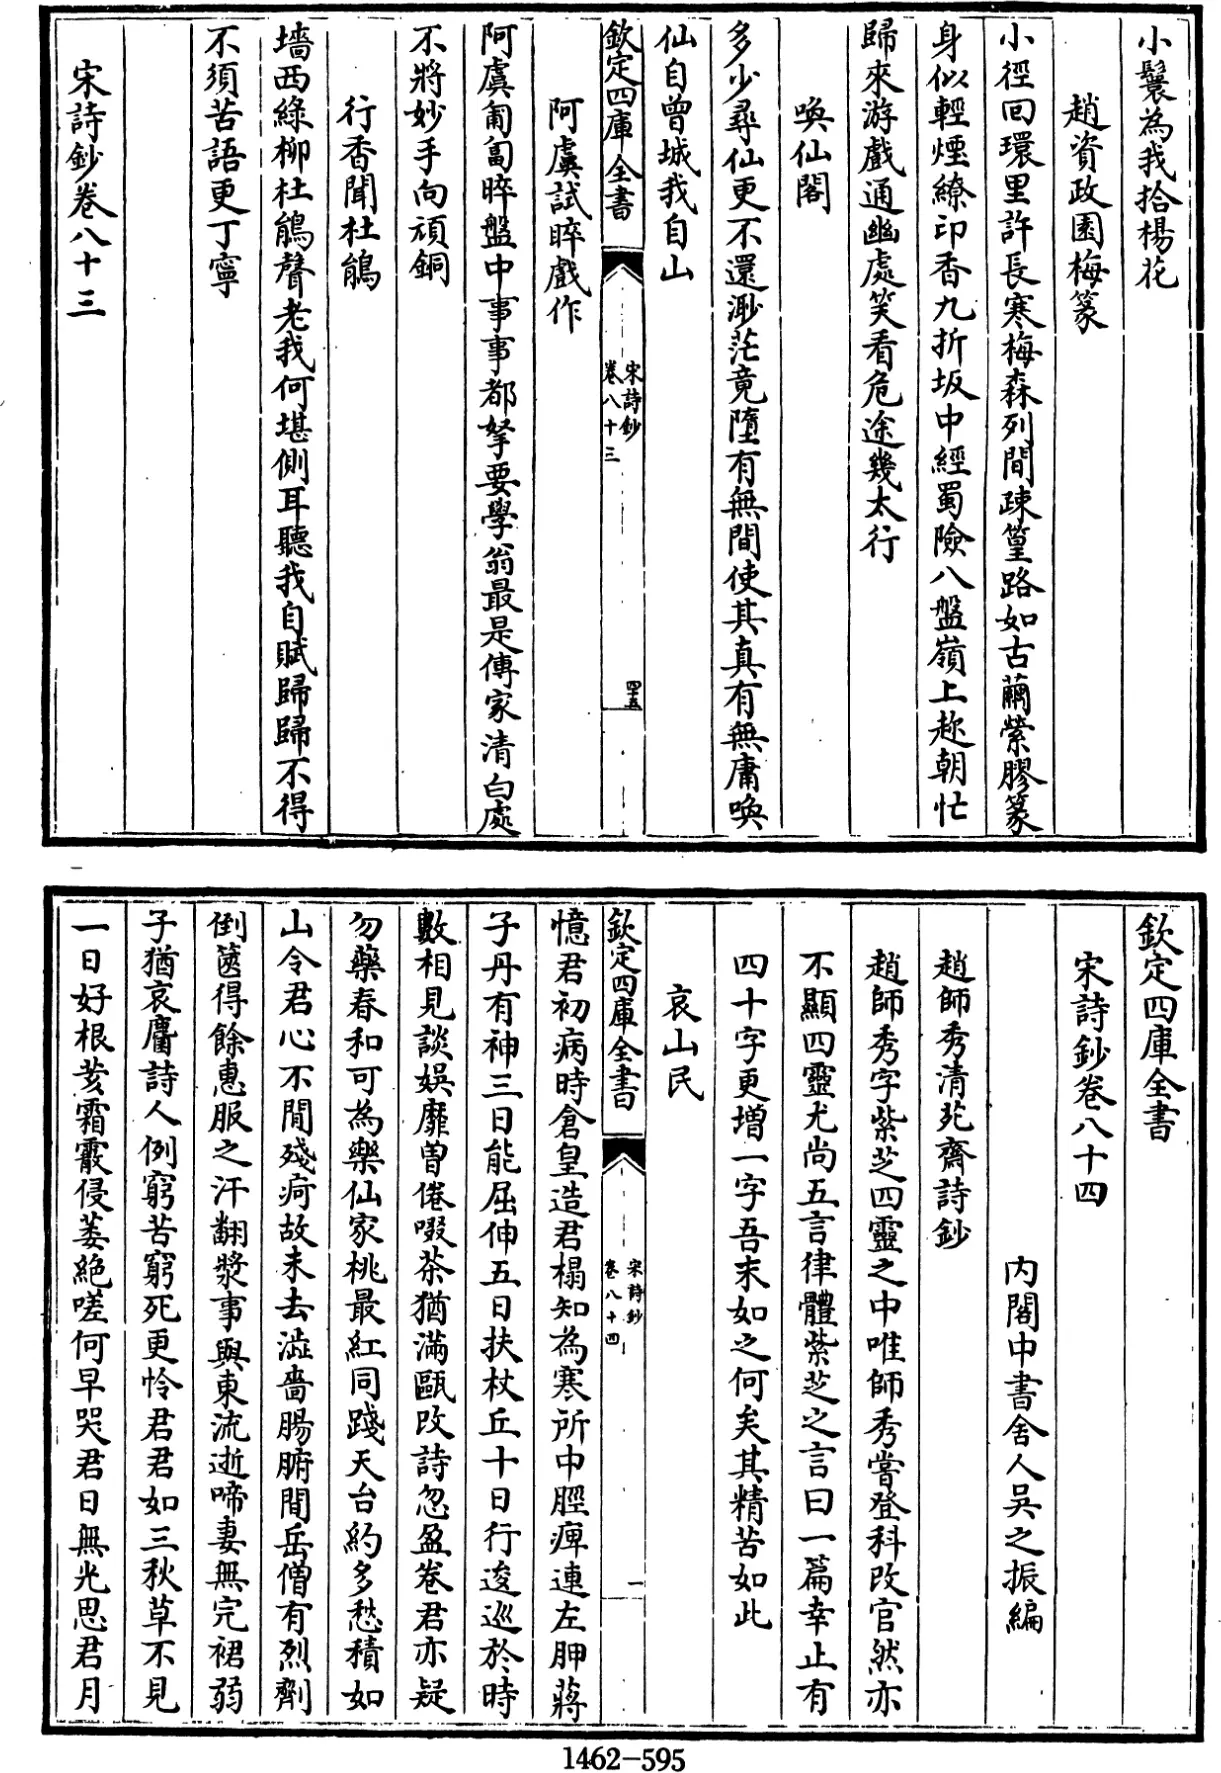 小鬟為我拾楊花
趙資政園梅篆
小徑回環里許長寒梅森列間疎篁路如古繭縈膠篆
身似輕煙繚印香九折坂中經蜀險八盤嶺上趂朝忙
歸來游戲通幽處笑看危途幾太行
喚仙閣
多少尋仙更不還渺茫竟墮有無間使其真有無庸喚
仙自曾城我自山
欽定四庫全書
宋詩鈔
卷八十三
四十五
阿虞試晬戲作
阿虞匍匐晬盤中事事都拏要學翁最是傳家清白處
不將妙手向頑銅
行香聞杜鵑
墻西綠柳杜鵑聲老我何堪側耳聽我自賦歸歸不得
不須苦語更丁寧
宋詩鈔卷八十三
欽定四庫全書
宋詩鈔卷八十四
內閣中書舍人吳之振編
趙師秀清苑齋詩鈔
趙師秀字紫芝四靈之中唯師秀嘗登科改官然亦
不顯四靈尤尚五言律體紫芝之言曰一篇幸止有
四十字更增一字吾末如之何矣其精苦如此
哀山民
欽定四庫全書
宋詩鈔
卷八十四
一
憶君初病時倉皇造君榻知為寒所中脛痺連左胛蔣
子丹有神三日能屈伸五日扶杖丘十日行逡巡於時
數相見談娛靡曽倦啜茶猶滿甌改詩忽盈卷君亦疑
勿藥春和可為樂仙家桃最紅同踐天台約多愁積如
山令君心不閒殘疴故未去澁嗇腸腑間岳僧有烈劑
倒篋得餘惠服之汗翻漿事與東流逝啼妻無完裙弱
子猶哀麛詩人例窮苦窮死更怜君君如三秋草不見
一日好根荄霜霰侵萎絶嗟何早哭君日無光思君月
1462-595